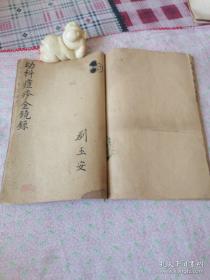 幼科痘疹金鏡録
刘玉安